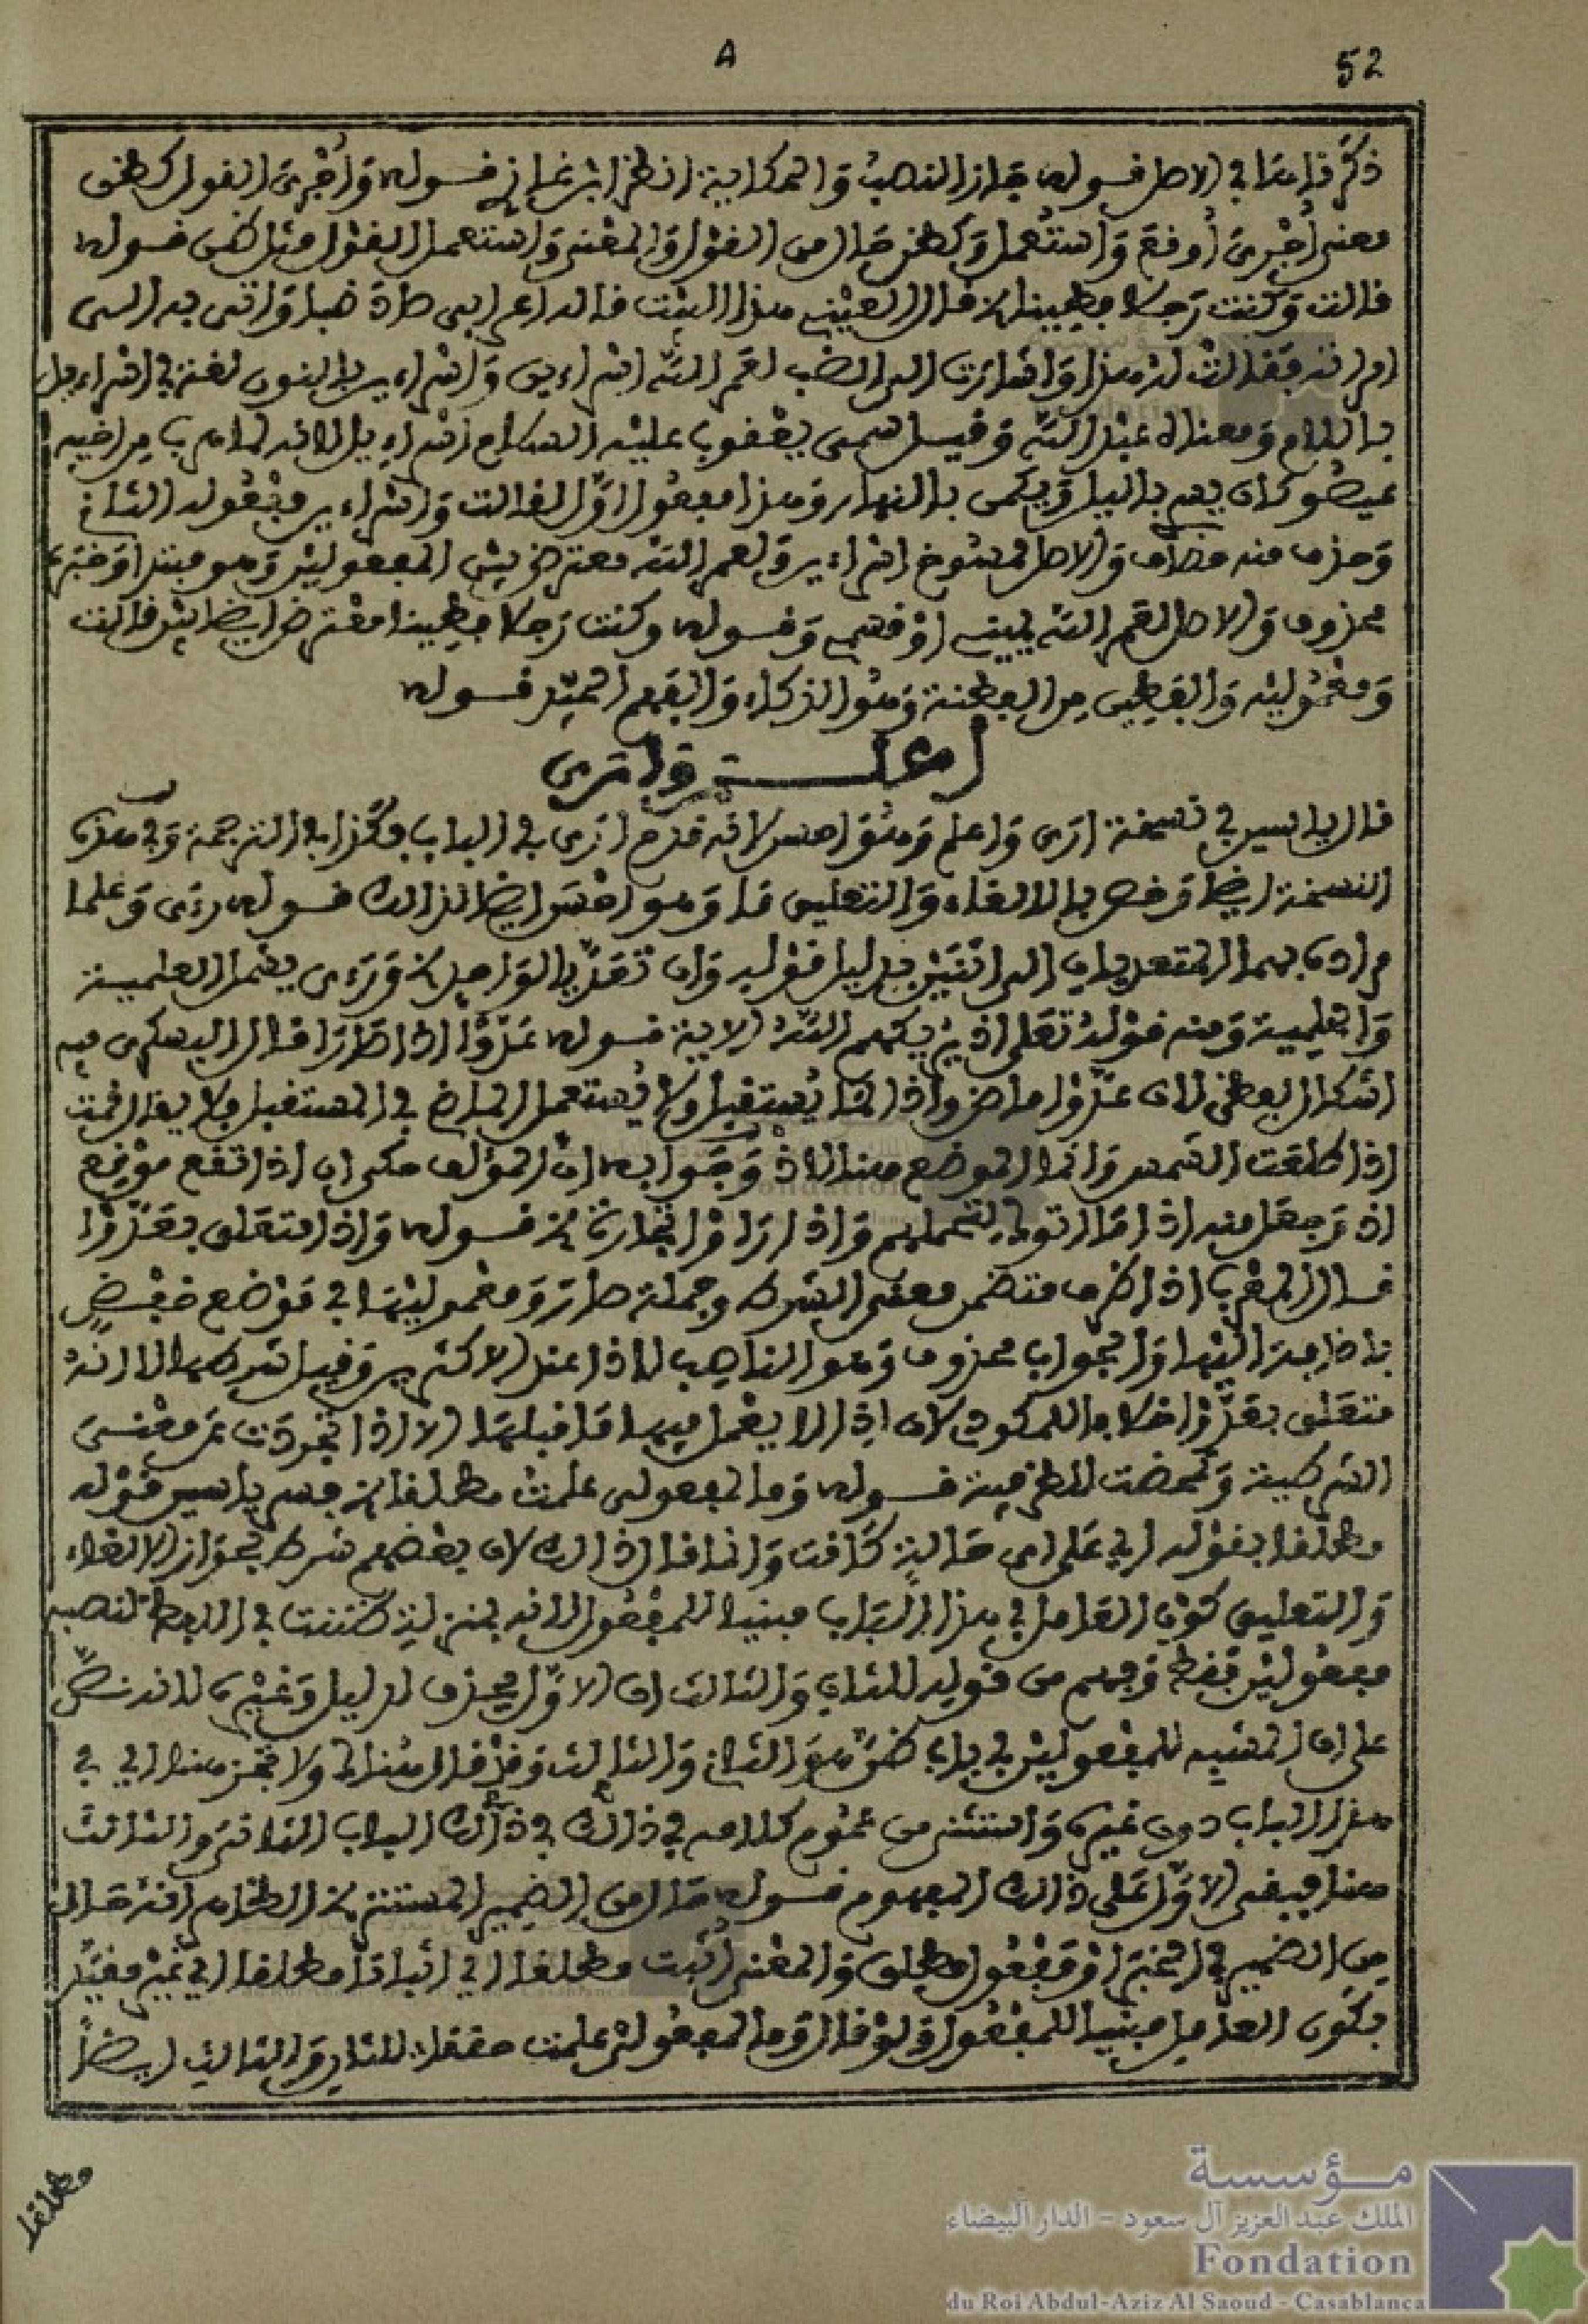 ٨
52
ذكر فإنها في الاصل قوله جاز النصب والحكاية انظر ابن غازي قوله وأجري القول كظن
معنى أجري أوقع واستعمل وكظن حال من القول والمعنى واستعمل القول مثل ظن قوله
قالت وكنت رجلا فطينا الخ قال العيني هذا البيت قاله اعرابي صاد ضبا واتى به الى
امراته فقالت له هذا واشارت الى الضب لعمر الله اسراءين واسراءين بالنون لغة في اسراءيل
باللام ومعناه عبد الله وقيل سمي يعقوب عليه السلام اسراءيل لانه لما هرب من اخيه
عيصو كان يسري بالليل ويكمن بالنهار وهذا مفعول اول لقالت واسراءين مفعوله الثاني
وحذف منه مضاف والاصل ممسوخ اسراءين ولعمر الله معترض بين المفعولين وهو مبتدا وخبره
محذوف والاصل لعمر الله يميني او قسمي وقوله وكنت رجلا فطينا معترض ايضا بين قالت
ومعموليه والفطين من الفطنة وهو الذكاء والفهم الجيد قوله
اعلم وأرى
قال ياسين في نسخة ارى واعلم وهو احسن لانه قدم ارى في الباب فكذا في الترجمة وفي هذه
النسخة ايضا وخص بالالغاء والتعليق ما وهو احسن ايضا لذالك قوله رءى وعلما
مراده بهما المتعديان الى اثنين بدليل قوله وان تعديا لواحد الخ ورءى يشمل العلمية
والحلمية ومنه قوله تعلى اذ يريكهم الله الاية قوله عدوا اذا صارا قال البسكري فيه
اشكال لفظي لان عدوا ماض واذا لما يستقبل ولا يستعمل الماضي في المستقبل فلا يقال قمت
اذا طلعت الشمس وانما الموضع هنا لاذ وجوابه ان المؤلف حكى ان اذا تقع موقع
اذ وجعل منه اذا ما اتوك لتحملهم واذا راوا تجارة الخ قوله واذا متعلق بعدوا
قال المعرب اذا ظرف متضمن معنى الشرط وجملة صار ومعموليها في موضع خفض
باضافة اذا اليها والجواب محذوف وهو الناصب لاذا عند الاكثرين وقيل شرطها لا انه
متعلق بعدوا خلافا للمكودي لان اذا لا يعمل فيها ما قبلها الا اذا تجردت عن معنى
الشرطية وتمحضت للظرفية قوله وما لمفعولي علمت مطلقا الخ فسر ياسين قوله
مطلقا بقوله اي على اي حالة كانت وانما قال ذالك لان بعضهم شرط لجواز الالغاء
والتعليق كون العامل في هذا الباب مبنيا للمفعول لانه بمنزلة ظننت في اللفظ لنصبه
مفعولين فقط وفهم من قوله للثاني والثالث ان الاول يحذف لدليل وغيره لانه نص
على ان المشبه للمفعولين في باب ظن هو الثاني والثالث وقد قال هناك ولا تجز هنا اي في
هذا الباب دون غيره واستثنى من عموم كلامه في ذالك في ذالك الباب الثاني والثالث
هنا فبقي الاول على ذالك المفهوم قوله حال من الضمير المستتر الخ الظاهر انه حال
من الضمير في الخبر او مفعول مطلق والمعنى أثبت مطلقا اي اثباتا مطلقا اي غير مقيد
بكون العامل مبنيا للمفعول ولو قال وما لمفعولي علمت حققا للثان والثالث ايضا
مطلقا
مؤسسة
الملك عبد العزيز آل سعود - الدار البيضاء
Fondation
du Roi Abdul-Aziz Al Saoud - Casablanca